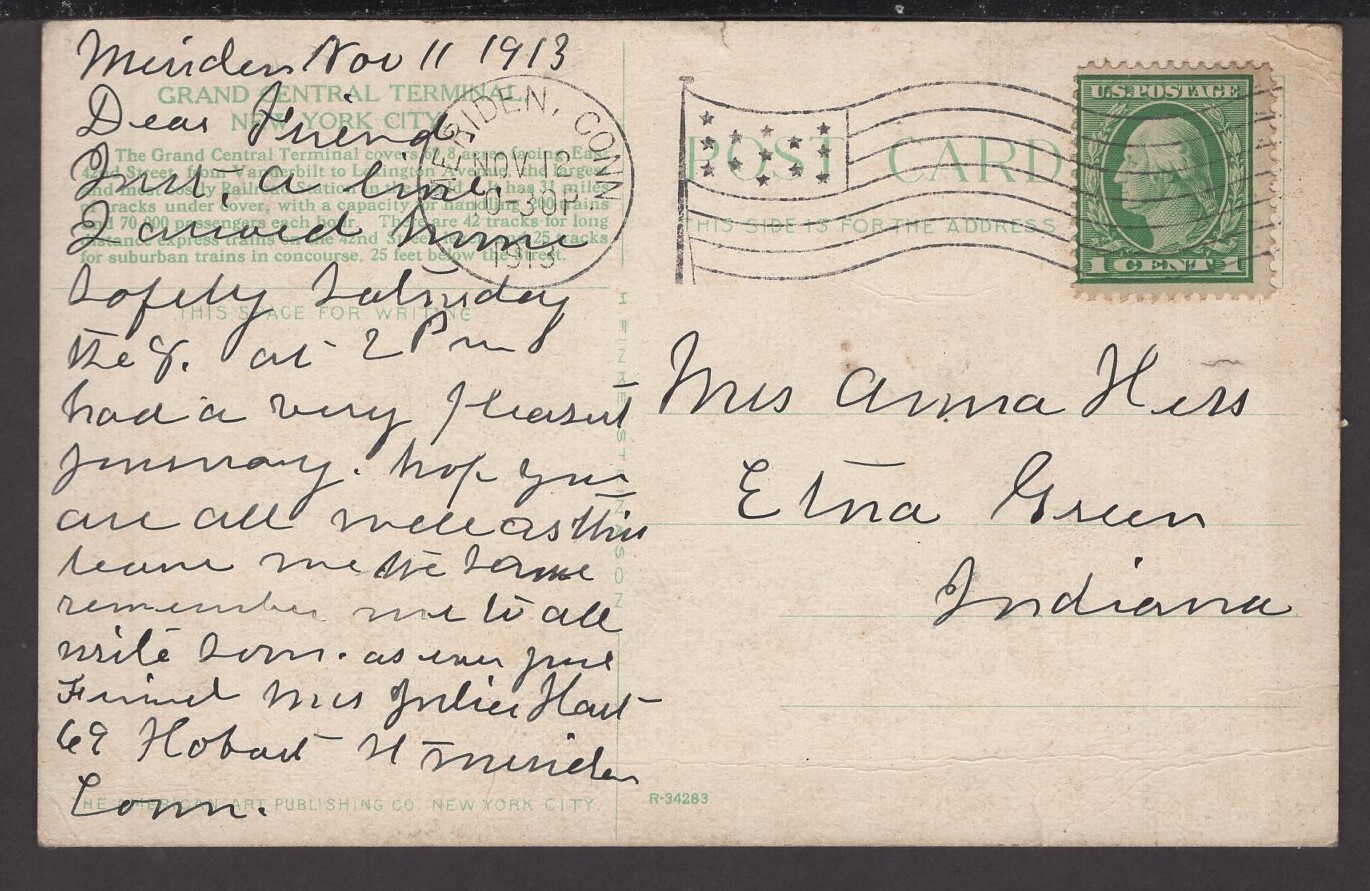 Meriden Nov 11 1913
Dear Friend.
Just a line.
I arived home
safely Saturday
the 8. at 2 Pm
had a very pleasent
journay. hop you
are all well as this
leave me the same
remember me to all
write soon. as ever your
Friend Mrs Julia Hart
69 Hobart St Meriden
Conn.
GRAND CENTRAL TERMINAL
NEW YORK CITY
The Grand Central Terminal covers 69.8 acres facing East
42nd Street, from Vanderbilt to Lexington Avenue, the largest
and most costly Railroad Station in the world. It has 31 miles
of tracks under cover, with a capacity for handling 200 trains
and 70,000 passengers each hour. There are 42 tracks for long
distance express trains on the 42nd Street level, 25 tracks
for suburban trains in concourse, 25 feet below the street.
THIS SPACE FOR WRITING
THE AMERICAN ART PUBLISHING CO. NEW YORK CITY.
R-34283
MERIDEN, CONN.
NOV 12
-30P
1913
POST CARD
THIS SIDE IS FOR THE ADDRESS
U.S. POSTAGE
1 CENT 1
Mrs Anna Hess
Etna Green
Indiana